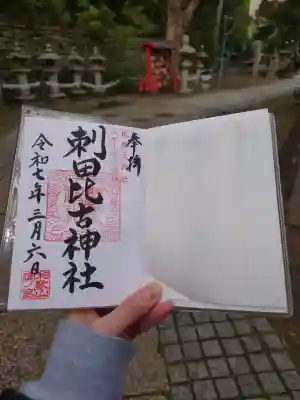 奉拝
刺田比古神社
令和七年三月六日